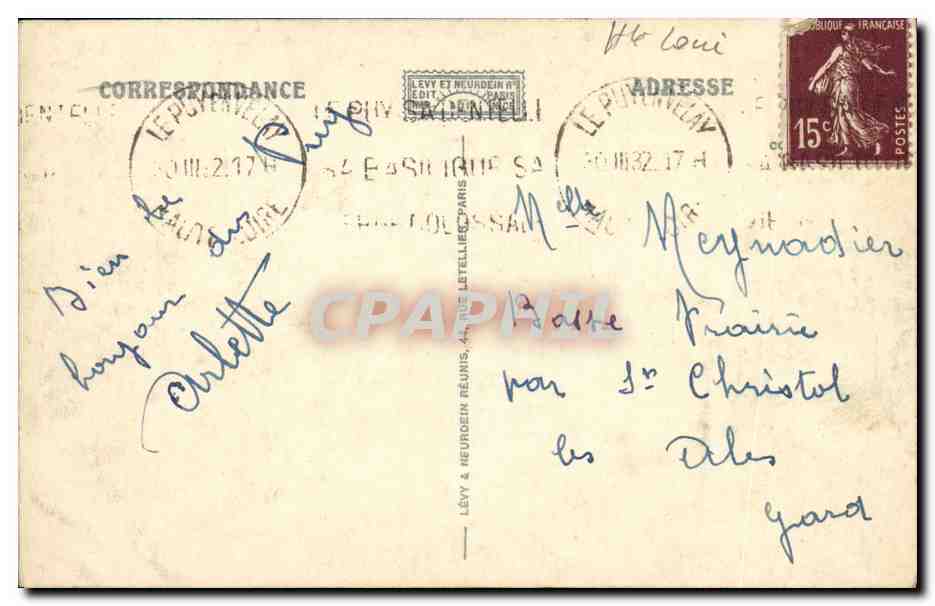 Hte Loire
CORRESPONDANCE
LEVY ET NEURDEIN Rs
EDIT PARIS
ADRESSE
REPUBLIQUE FRANÇAISE
15c
POSTES
LE PUY EN VELAY
30 III 32 17 H
HAUTE LOIRE
LE PUY SA DENTELLE
SA BASILIQUE SA
COLOSSALE
LE PUY EN VELAY
30 III 32 17 H
Bien le
bonjour du Puy
Arlette
Melle Meynadier
Basse Prairie
par St Christol
les Alès
Gard
LÉVY & NEURDEIN RÉUNIS, 44, RUE LETELLIER, PARIS
CPAPHIL